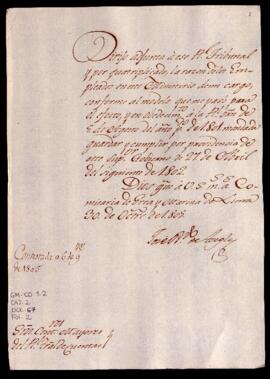 Dirijo adjunta à ese Rl. Tribunal
y por quatriplicado, la razon de los Em-
pleados en este Ministerio de mi cargo,
conforme al modelo que se pasó para
el efecto, y en obedecimto. à la Rl. Orn. de
5 de Agosto del año pº. de 1801. mandada
guardar y cumplir por providencia de
este Supr. Gobierno de 27 de Abril
del siguiente de 1802.
Dios gue. à V.S. ms. as. Co-
misaria de Grra. y Marina de Lima
30. de Octre. de 1805.
Contextda. a 6 de 9bre
de 1805
GM-CO 1.2
CAJ. 2
DOC. 67
FOL. 2
Sres. Contres. Mayores
del Rl. Tral. de Cuentas